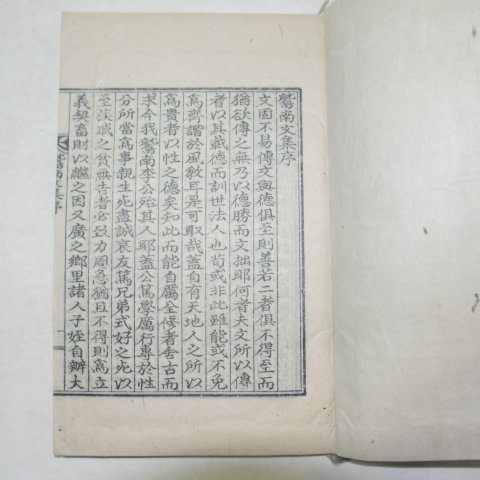 鷲南文集序
文固不易傳文與德俱至則善若二者俱不得至而
猶欲傳之無乃以德勝而文拙耶何者夫文所以傳
者以其載德而訓世法人也苟或非此雖能或不免
爲齊諧於風敎耳是可取哉蓋自有天地人之所以
爲貴者以性之德矣知此而能自屬全修者舍古而
求今我鷲南李公殆其人耶蓋公篤學厲行專於性
分所當爲事親生死盡誠哀友篤兄弟式好之死以
至茨戚之貧無告者必致力恩急猶且不得則爲立
義契畜財以繼之因又廣之鄕里諸人子姪自辦大
鷲南文集序